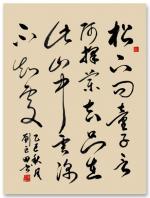 松下問童子言
師採藥去只在
此山中雲深
不知處
乙巳秋月
劉田書